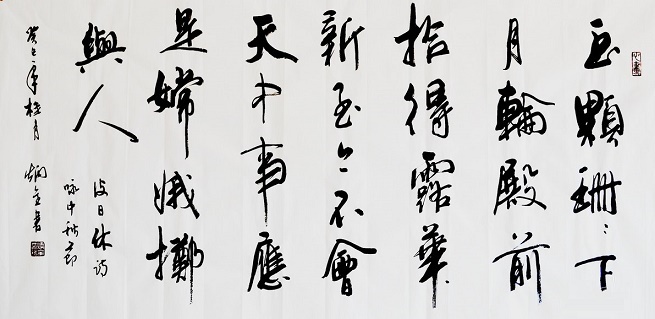 玉顆珊〻下
月輪殿前
拾得露華
新至今不會
天中事應
是嫦娥擲
與人
皮日休詩
咏中秋節
癸巳年桂月 書